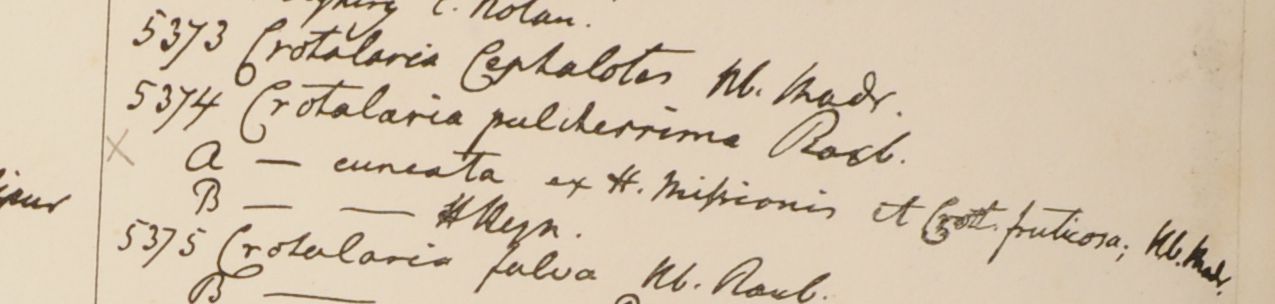 C. Rolan.
5373 Crotalaria Cephalotes Hb. Madr.
5374 Crotalaria pulcherrima Roxb.
A — cuneata ex H. Missionis et Crott. fruticosa; Hb. Madr.
B — — H Heyn.
5375 Crotalaria fulva Hb. Roxb.
B —